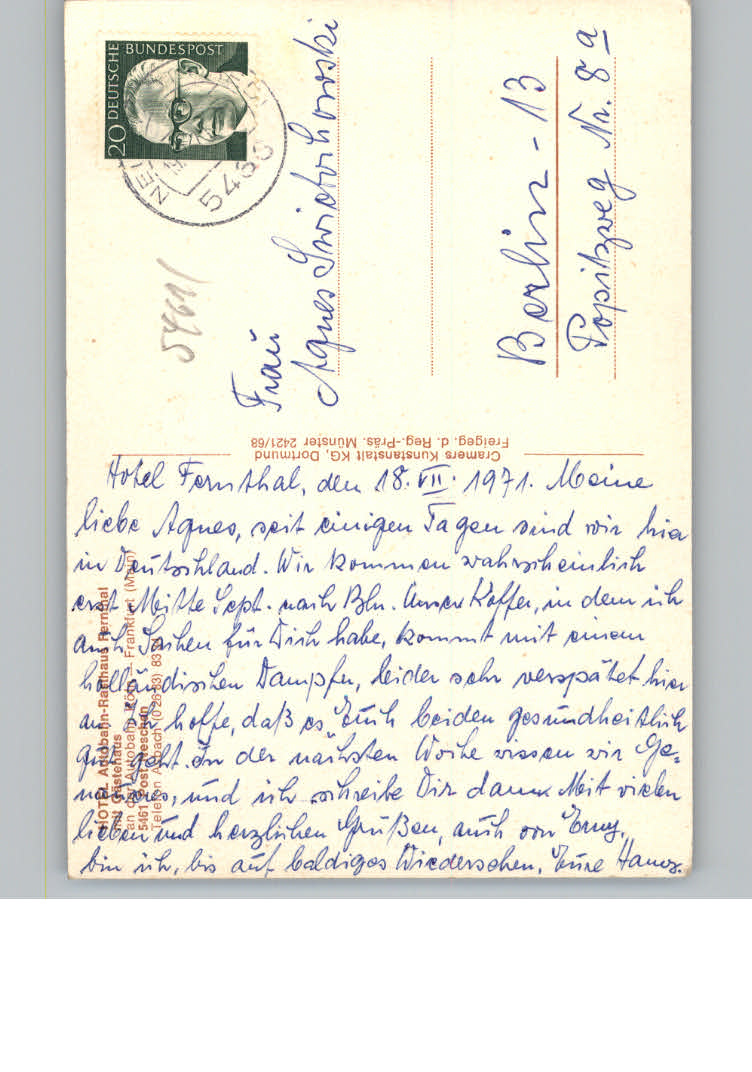 20 DEUTSCHE BUNDESPOST
5466
5461
Frau
Agnes
Berlin - 13
Popitzweg Nr. 8a
Cramers Kunstanstalt KG, Dortmund
Freigeg. d. Reg.-Präs. Münster 2421/68
HOTEL Autobahn-Rasthaus Fernthal
mit Gästehaus
an der Autobahn Köln – Frankfurt (Main)
5461 Post Neschen
Telefon Asbach (02683)
Hotel Fernthal, den 18. VII. 1971. Meine
liebe Agnes, seit einigen Tagen sind wir hier
in Deutschland. Wir kommen wahrscheinlich
erst Mitte Sept. nach Bln. Unser Koffer, in dem ich
auch Sachen für Dich habe, kommt mit einem
holländischen Dampfer, leider sehr verspätet hier
an. Ich hoffe, daß es Euch beiden gesundheitlich
gut geht. In der nächsten Woche wissen wir Ge=
naueres, und ich schreibe Dir dann. Mit vielen
lieben und herzlichen Grüßen, auch von
bin ich, bis auf baldiges Wiedersehen, Eure